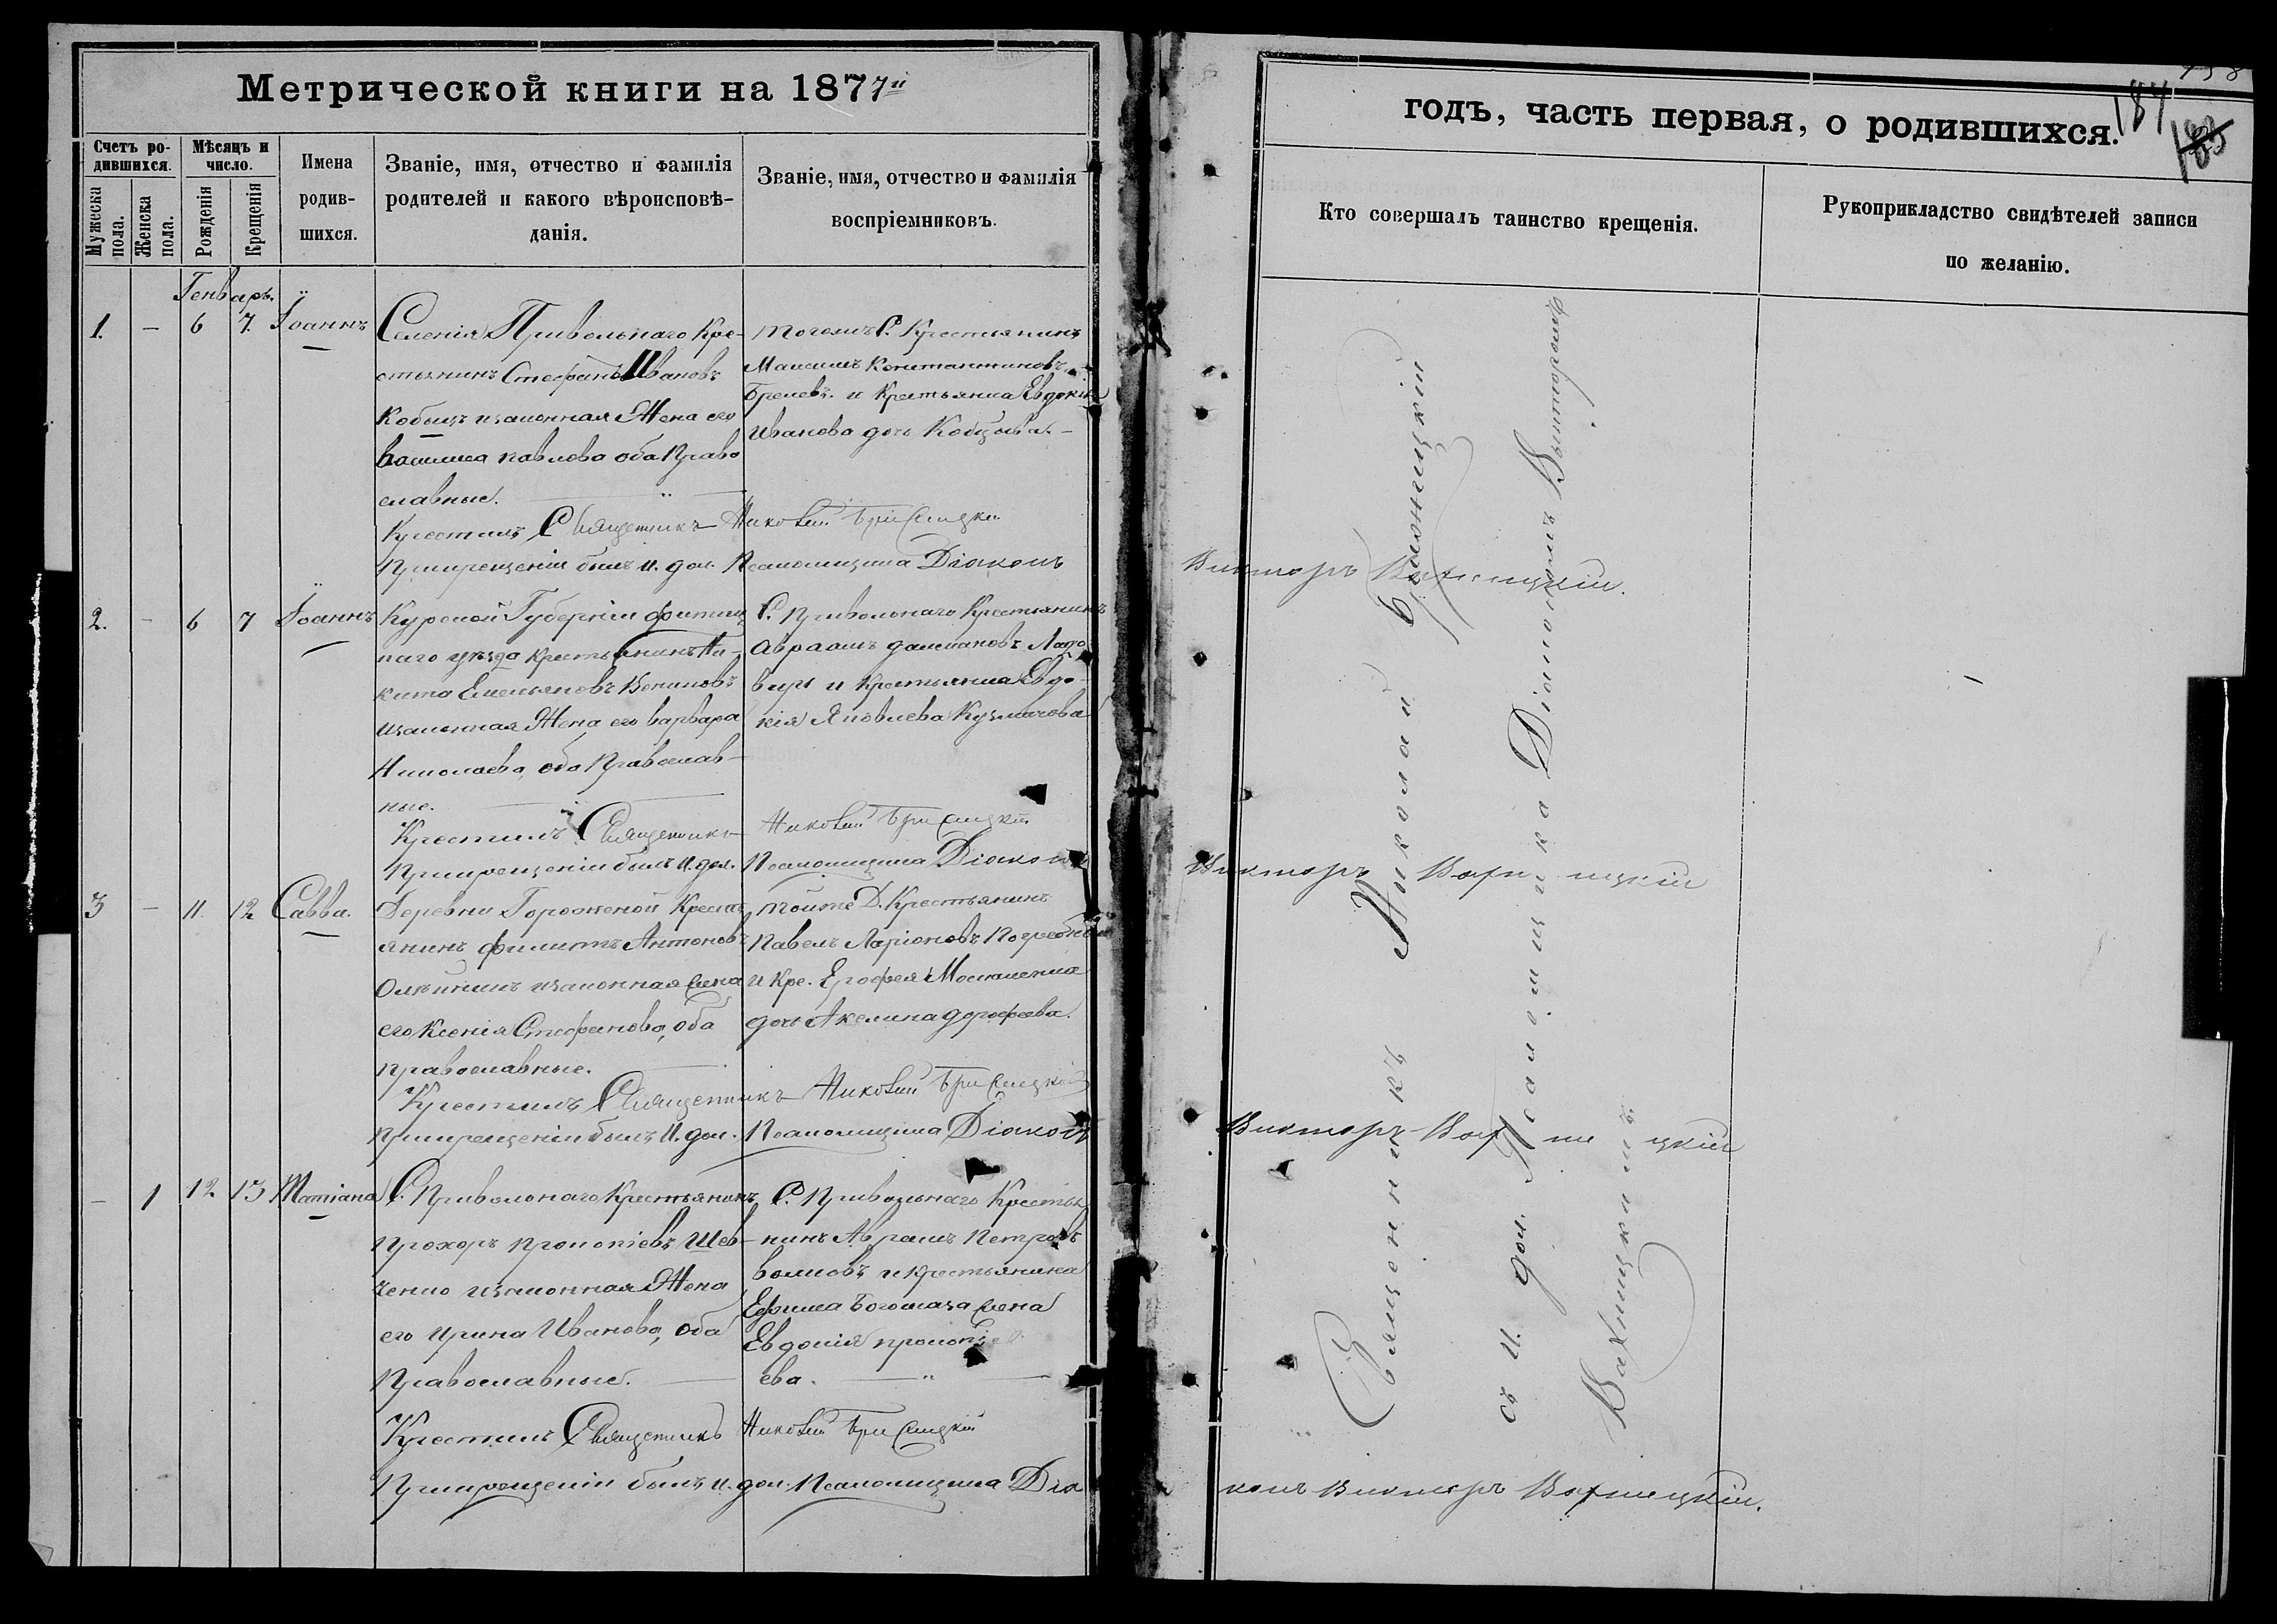 Метрической книги на 1877й
Счетъ ро-
дившихся.
Мѣсяцъ и
число.
Мужеска
пола.
Женска
пола.
Рожденія
Крещенія
Имена
родив-
шихся.
Званіе, имя, отчество и фамилія
родителей и какого вѣроисповѣ-
данія.
Званіе, имя, отчество и фамилія
воспріемниковъ.
Генварь.
1. — 6 7. Іоаннъ
Селенія Привольнаго Кре-
стьянинъ Стефанъ Ивановъ
Кобецъ изаконная Жена его
Василиса павлова оба Право
славные.
тогожъ С. Крестьянинъ
Максимъ Константиновъ
и Крестьянка Евдокія
Иванова дочь
Крестилъ Священникъ Николай
Прикрещеніи былъ И. дол. Псаломщика Діаконъ
2. — 6 7 Іоаннъ
Курской Губерніи
наго уѣзда крестьянинъ Ни-
кита Емельяновъ
изаконная Жена его варвара
Николаева, оба Православ-
ные.
С. Привольнаго Крестьянинъ
Авраамъ
и Крестьянка Евдо-
кія Яковлева Кузмичова
Крестилъ Священникъ Николай
Прикрещеніи былъ И. дол. Псаломщика Діаконъ
3 — 11. 12 Савва.
Деревни Горожеской Кресть
янинъ филиппъ Антоновъ
изаконная Жена
его Ксенія Стефанова, оба
православные.
тойже Д. Крестьянинъ
Павелъ Ларіоновъ
и Кре. Ерофея Москаленка
дочь Акелина дорофеева.
Крестилъ Священникъ Николай
Прикрещеніи былъ И. дол. Псаломщика Діаконъ
— 1 12. 13 Татіана
С. Привольнаго Крестьянинъ
прохоръ прокопіевъ Шев-
ченко изаконная Жена
его ирина Иванова, оба
Православные.
С. Привольнаго Кресть
нинъ Авраамъ Петровъ
волковъ и крестьянина
Ефима Богомаза Жена
Евдокія прокопі
ева.
Крестилъ Священникъ Николай
Прикрещеніи былъ и. дол. Псаломщика Діа
годъ, часть первая, о родившихся.
187
183
Кто совершалъ таинство крещенія.
Рукоприкладство свидѣтелей записи
по желанію.
Викторъ Вахницкій.
Викторъ Вахницкій
Викторъ Вахницкій
конъ Викторъ Вахницкій.
Священникъ Николай
съ И. дол. Псаломщика Діакономъ Викторомъ
Вахницкимъ.